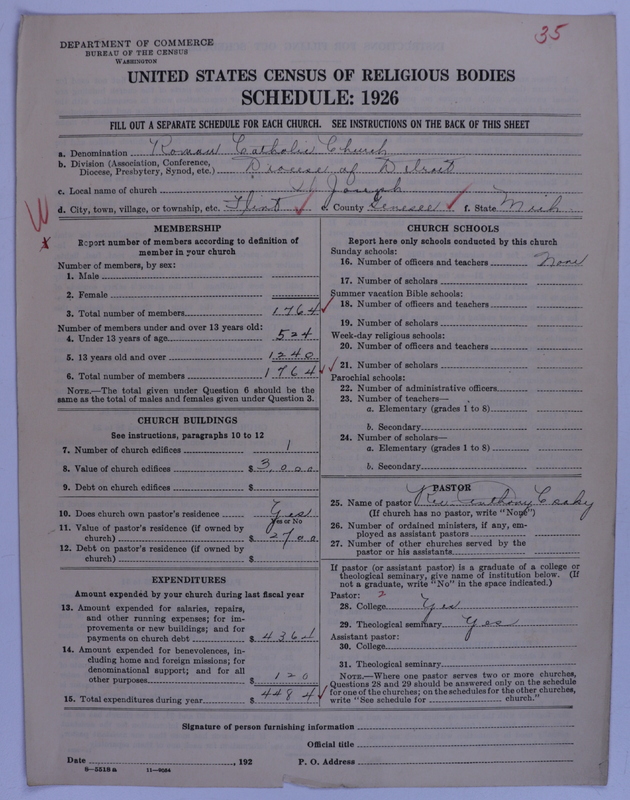 35
DEPARTMENT OF COMMERCE
BUREAU OF THE CENSUS
WASHINGTON
UNITED STATES CENSUS OF RELIGIOUS BODIES
SCHEDULE: 1926
FILL OUT A SEPARATE SCHEDULE FOR EACH CHURCH. SEE INSTRUCTIONS ON THE BACK OF THIS SHEET
a. Denomination Roman Catholic Church
b. Division (Association, Conference,
Diocese, Presbytery, Synod, etc.) Diocese of Detroit
c. Local name of church St Joseph
d. City, town, village, or township, etc. Flint e. County Genesee f. State Mich
MEMBERSHIP
Report number of members according to definition of
member in your church
Number of members, by sex:
1. Male
2. Female
3. Total number of members 1764
Number of members under and over 13 years old:
4. Under 13 years of age 524
5. 13 years old and over 1240
6. Total number of members 1764
NOTE.—The total given under Question 6 should be the
same as the total of males and females given under Question 3.
CHURCH BUILDINGS
See instructions, paragraphs 10 to 12
7. Number of church edifices 1
8. Value of church edifices $ 3,000
9. Debt on church edifices $
10. Does church own pastor's residence Yes
Yes or No
11. Value of pastor's residence (if owned by
church) $ 2700
12. Debt on pastor's residence (if owned by
church) $
EXPENDITURES
Amount expended by your church during last fiscal year
13. Amount expended for salaries, repairs,
and other running expenses; for im-
provements or new buildings; and for
payments on church debt $ 4364
14. Amount expended for benevolences, in-
cluding home and foreign missions; for
denominational support; and for all
other purposes $ 120
15. Total expenditures during year $ 4484
CHURCH SCHOOLS
Report here only schools conducted by this church
Sunday schools:
16. Number of officers and teachers None
17. Number of scholars
Summer vacation Bible schools:
18. Number of officers and teachers
19. Number of scholars
Week-day religious schools:
20. Number of officers and teachers
21. Number of scholars
Parochial schools:
22. Number of administrative officers
23. Number of teachers—
a. Elementary (grades 1 to 8)
b. Secondary
24. Number of scholars—
a. Elementary (grades 1 to 8)
b. Secondary
PASTOR
25. Name of pastor Rev Anthony Csaky
(If church has no pastor, write "None")
26. Number of ordained ministers, if any, em-
ployed as assistant pastors
27. Number of other churches served by the
pastor or his assistants
If pastor (or assistant pastor) is a graduate of a college or
theological seminary, give name of institution below. (If
not a graduate, write "No" in the space indicated.)
Pastor: 2
28. College Yes
29. Theological seminary Yes
Assistant pastor:
30. College
31. Theological seminary
NOTE.—Where one pastor serves two or more churches,
Questions 28 and 29 should be answered only on the schedule
for one of the churches; on the schedules for the other churches,
write "See schedule for church."
Signature of person furnishing information
Official title
Date , 192 P. O. Address
8—5518 a 11—9064